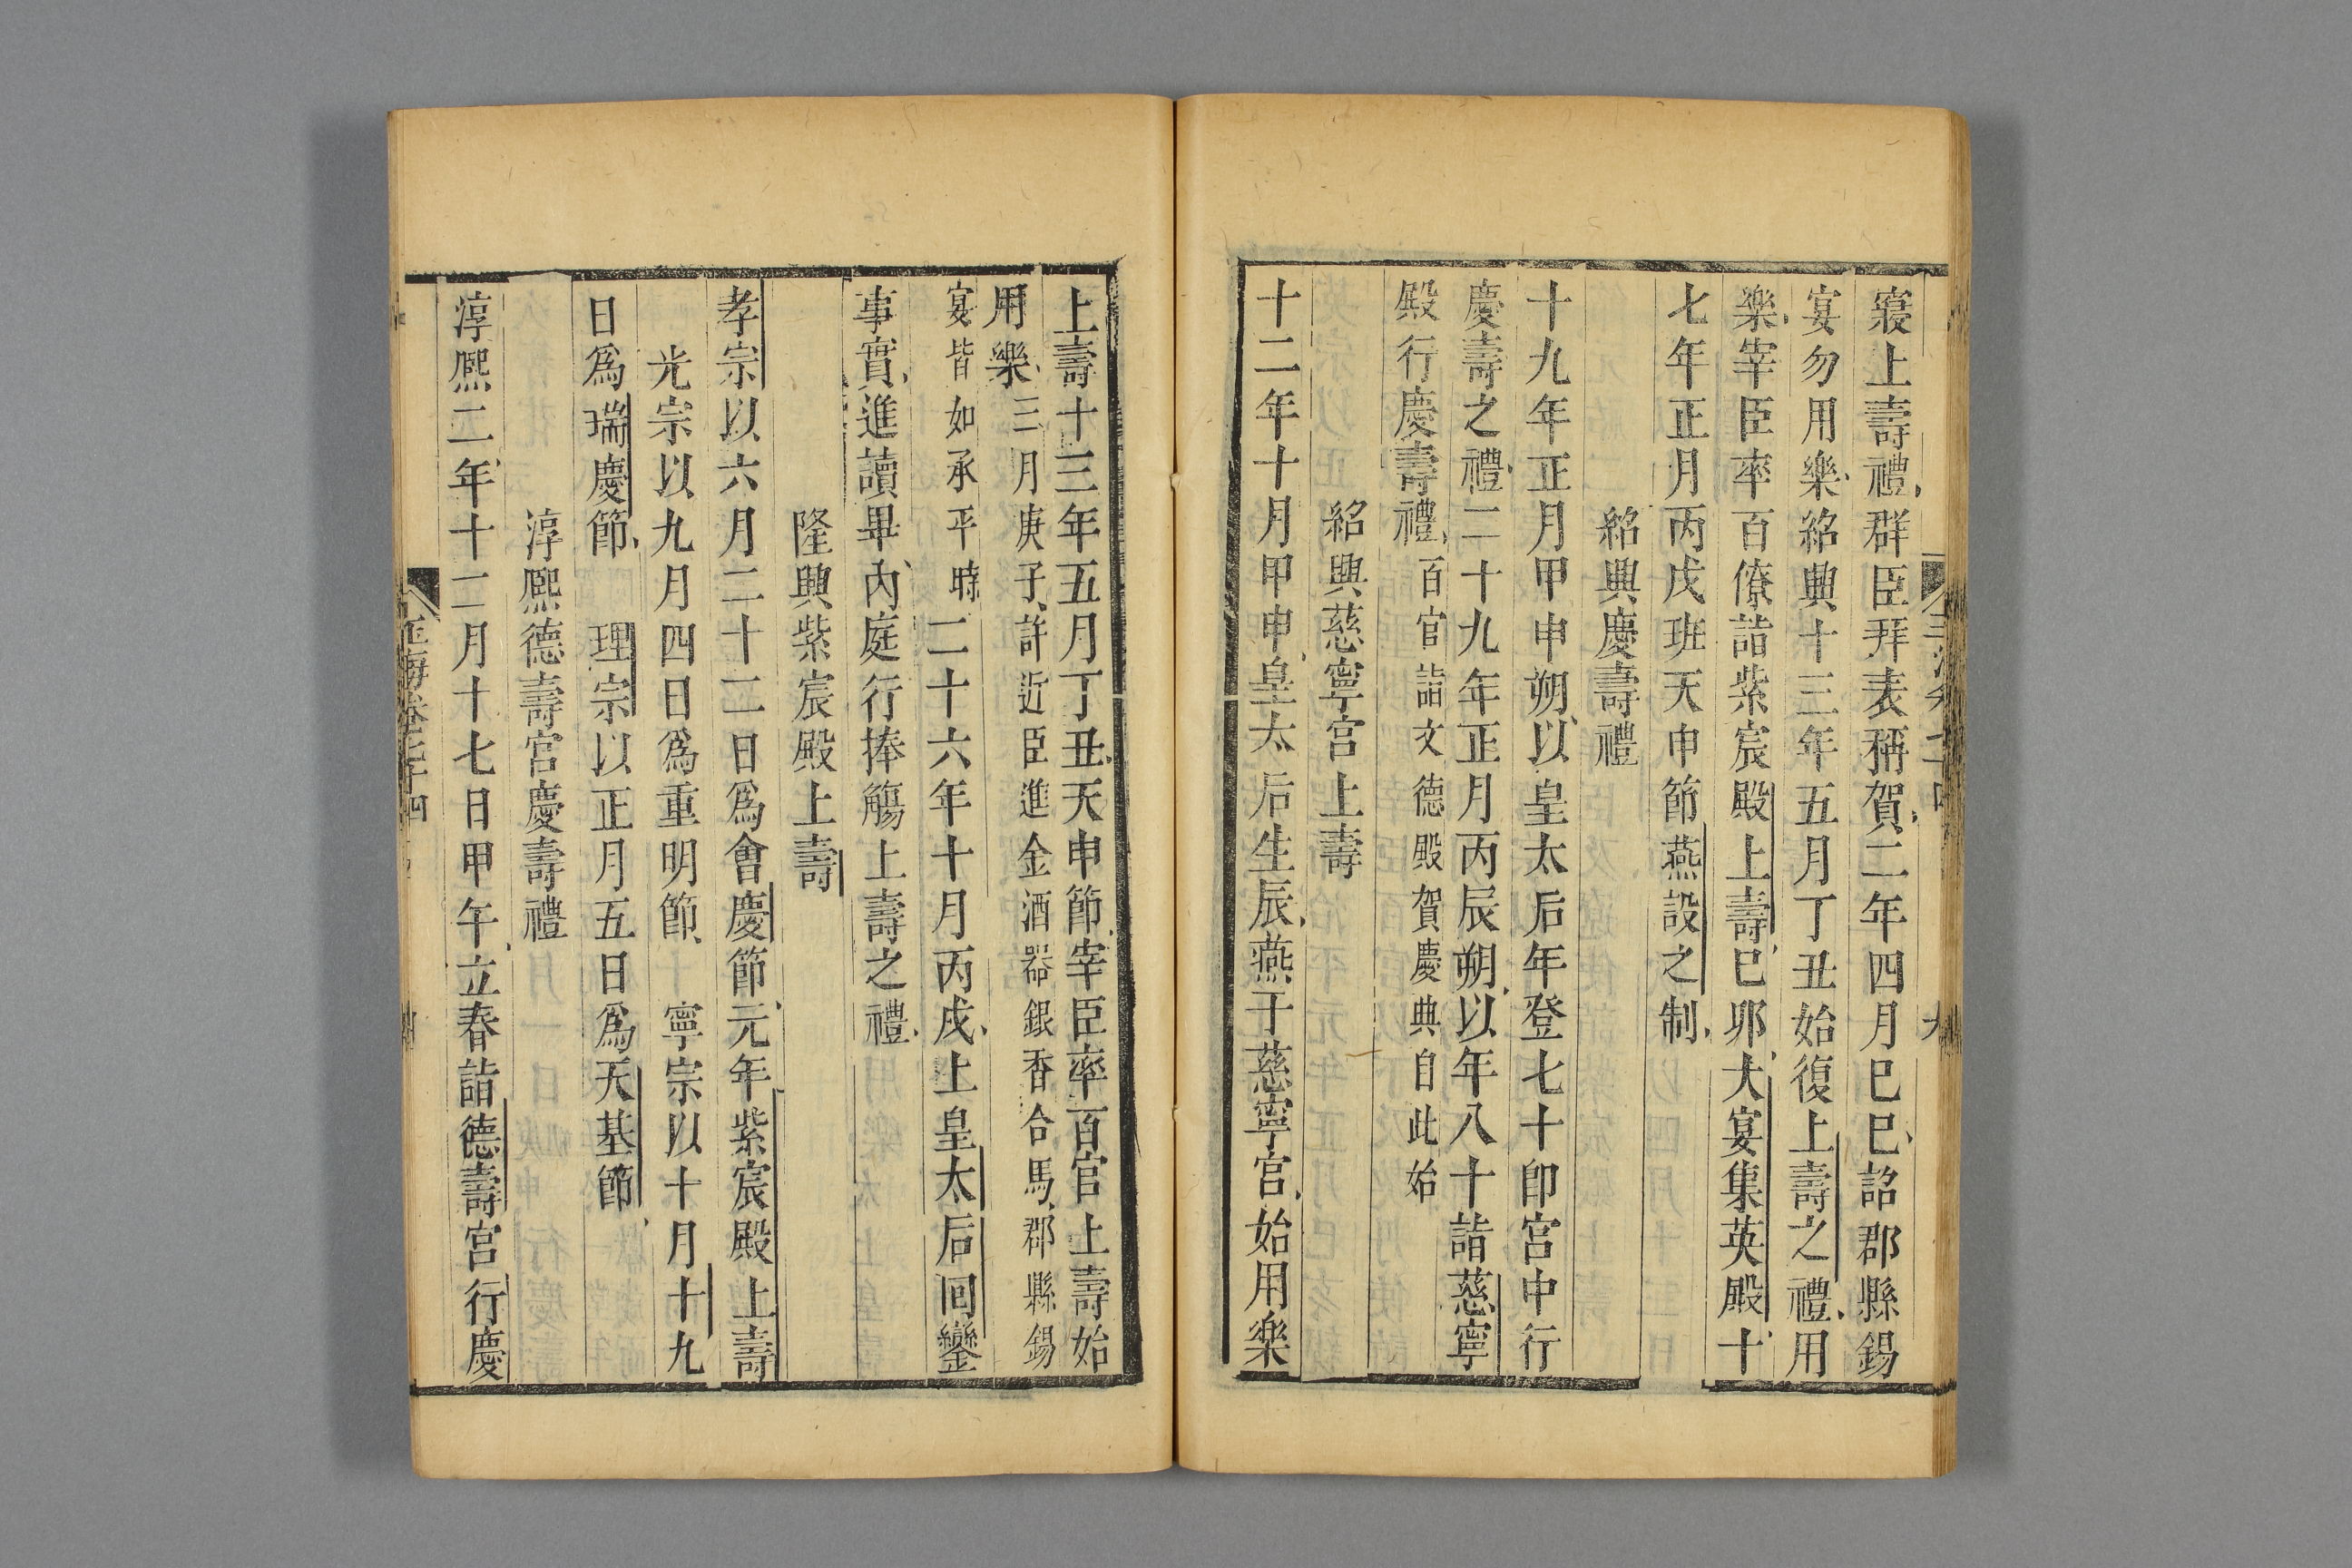 寢上壽禮群臣拜表稱賀二年四月己巳詔郡縣錫
宴勿用樂紹興十三年五月丁丑始復上壽之禮用
樂宰臣率百僚詣紫宸殿上壽己卯大宴集英殿十
七年正月丙戌班天申節燕設之制
紹興慶壽禮
十九年正月甲申朔以皇太后年登七十即宮中行
慶壽之禮二十九年正月丙辰朔以年八十詣慈寧
殿行慶壽禮百官詣文德殿賀慶典自此始
紹興慈寧宮上壽
十二年十月甲申皇太后生辰燕于慈寧宮始用樂
上壽十三年五月丁丑天申節宰臣率百官上壽始
用樂三月庚子許近臣進金酒器銀香合馬郡縣錫
宴皆如承平時二十六年十月丙戌上皇太后回鑾
事實進讀畢內庭行捧觴上壽之禮
隆興紫宸殿上壽
孝宗以六月二十二日爲會慶節元年紫宸殿上壽
光宗以九月四日爲重明節 寧宗以十月十九
日爲瑞慶節 理宗以正月五日爲天基節
淳熙德壽宮慶壽禮
淳熙二年十二月十七日甲午立春詣德壽宮行慶
玉海卷七十四